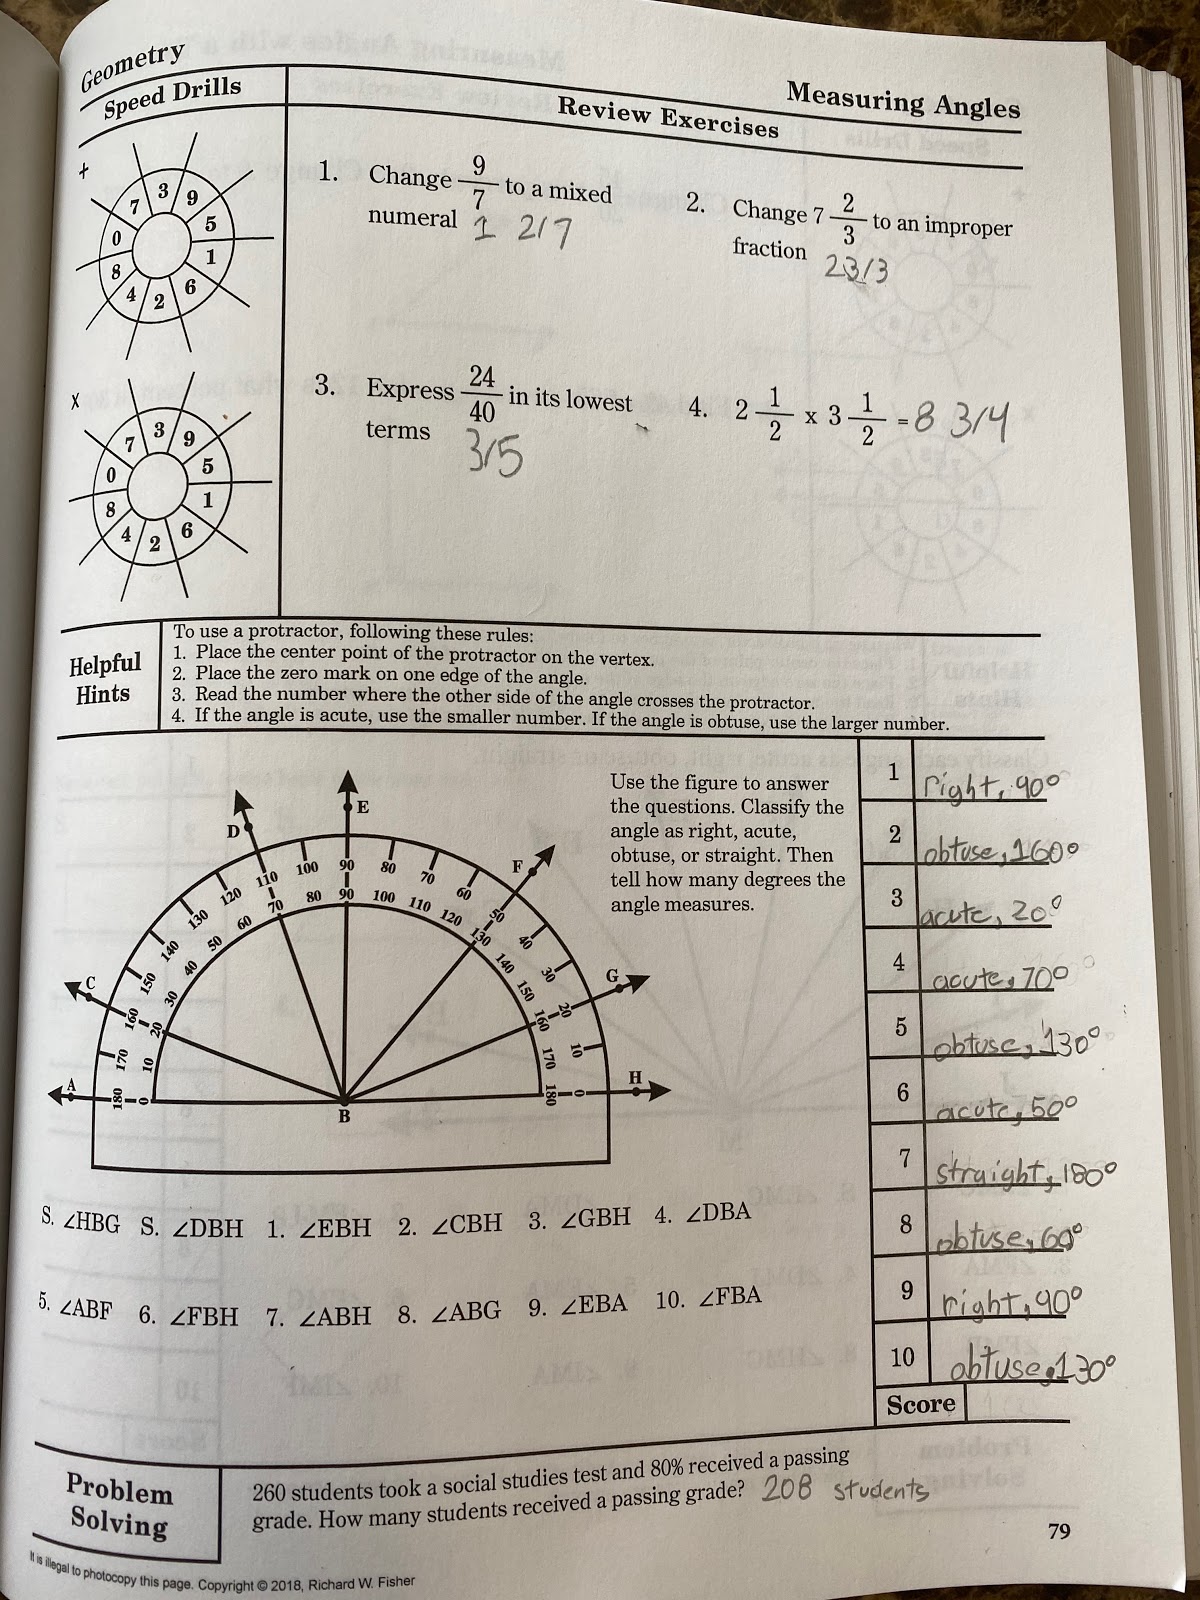 Geometry
Measuring Angles
Speed Drills
Review Exercises
+
3 9 5 1 6 2 4 8 0 7
x
3 9 5 1 6 2 4 8 0 7
1. Change 9/7 to a mixed
numeral 1 2/7
2. Change 7 2/3 to an improper
fraction
23/3
3. Express 24/40 in its lowest
terms 3/5
4. 2 1/2 x 3 1/2 = 8 3/4
Helpful
Hints
To use a protractor, following these rules:
1. Place the center point of the protractor on the vertex.
2. Place the zero mark on one edge of the angle.
3. Read the number where the other side of the angle crosses the protractor.
4. If the angle is acute, use the smaller number. If the angle is obtuse, use the larger number.
A B C D E F G H
180 170 160 150 140 130 120 110 100 90 80 70 60 50 40 30 20 10 0
0 10 20 30 40 50 60 70 80 90 100 110 120 130 140 150 160 170 180
Use the figure to answer
the questions. Classify the
angle as right, acute,
obtuse, or straight. Then
tell how many degrees the
angle measures.
1 right, 90°
2 obtuse, 160°
3 acute, 20°
4 acute, 70°
5 obtuse, 130°
6 acute, 50°
7 straight, 180°
8 obtuse, 60°
9 right, 90°
10 obtuse, 130°
Score
S. ∠HBG S. ∠DBH 1. ∠EBH 2. ∠CBH 3. ∠GBH 4. ∠DBA
5. ∠ABF 6. ∠FBH 7. ∠ABH 8. ∠ABG 9. ∠EBA 10. ∠FBA
Problem
Solving
260 students took a social studies test and 80% received a passing
grade. How many students received a passing grade? 208 students
79
It is illegal to photocopy this page. Copyright © 2018, Richard W. Fisher